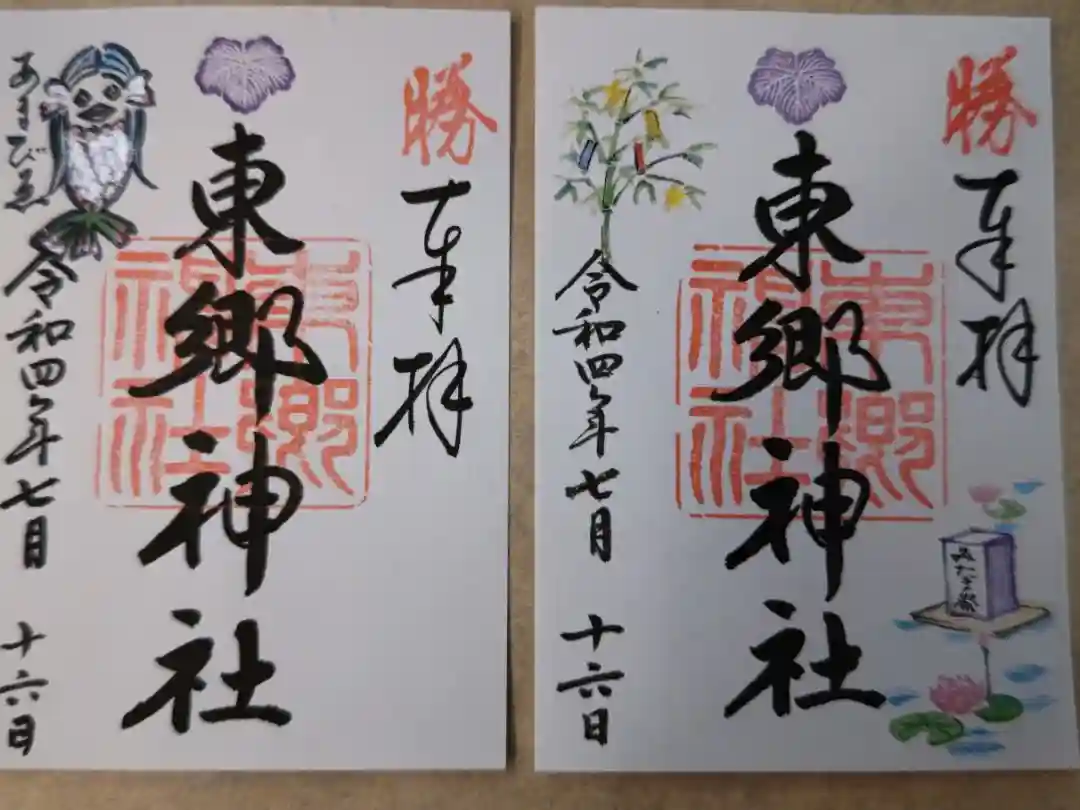 勝
奉拝
東郷神社
東郷
神社
令和四年七月十六日
あまびゑ
勝
奉拝
東郷神社
東郷
神社
令和四年七月十六日